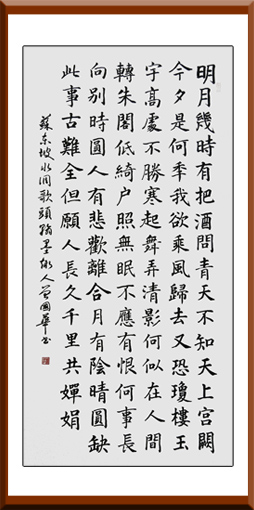 明月幾時有把酒問青天不知天上宮闕
今夕是何秊我欲乘風歸去又恐瓊樓玉
宇高處不勝寒起舞弄清影何似在人間
轉朱閣低綺户照無眠不應有恨何事長
向别時圓人有悲歡離合月有陰晴圓缺
此事古難全但願人長久千里共嬋娟
蘇东坡水调歌頭墨人國華书